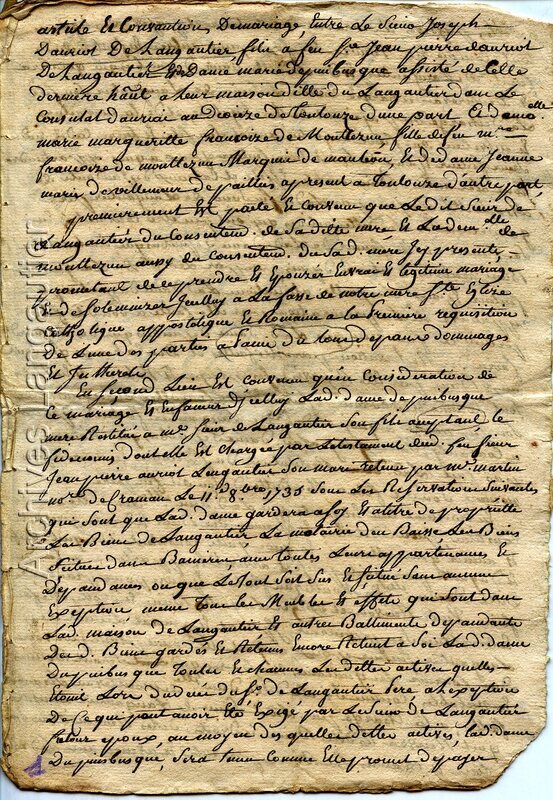 article Et Conventions De mariage Entre Le Sieur Joseph
Dauriot De Langautier, fils a feu Sr. Jean pierre dauriot
De Langautier Et de Dame marie de puibusque assisté de Celle
derniere haut a leur maison ditte du Langautier dans Le
Consulat dauriac au dioceze de Toulouze d'une part Et damoelle
marie margueritte françoize de Montlezun fille de feu mre.
françois de montlezun Marquis de mauleon, Et de dame Jeanne
marie de villemeur de pailles apresent a Toulouze d'autre part
premierement Est pacte Et convenu que Le dit Sieur de
Langautier du Consentemt. de Sa ditte mere Et La demlle de
montlezun aussy du Consentemt. de Sad. mere Jcy presente
promettant de Se prendre Et Epouzer En vrai Et legitime mariage
Et de Solemnizer Jcelluy a La fasse de notre mere Ste. Eglize
Catholique appostolique Et Romaine a La premiere requisition
De L'une des parties a paine de tous depans dommages
Et Jntherets
En Second Lieu Est convenu qu'en Consideration de
Ce mariage Et En faveur d'Jcelluy Lad. dame de puibusque
mere Restitue a Langautier Son fils acceptant le
fideicomis dont elle Est chargée par Le testament dud. feu sieur
Jean pierre auriot Langautier Son mary retenu par me. martin
nore. de Craman Le 11e. 8bre 1735 Sous Les Reservations Suivantes
qui Sont que Lad. dame gardera a Soy Et a titre de proprietté
Les Biens de Langautier La metairie du Baisse Les Biens
Situés dans avec toutes Leurs appartenances Et
Dependances ou que Le tout Soit Sis Et Situé Sans aucune
Exception meme tous Les Meubles Et effets qui Sont dans
Lad. maison de Langautier Et autres Battiments dependants
Desd. Biens gardés Et Retenus Encore Retient a Soi Lad. dame
De puibusque Toutes Et chacunes Les dettes actives quelles
Etoint Lors du deces du Sr. de Langautier pere a L'exeption
De Ce qui peut avoir Eté Exigé par Le Sieur de Langautier
futeur epoux au moyen des quelles dettes actives, Lad. dame
De puibusque, Sera tenue Comme Elle promet de payer
Archives Langautier
1